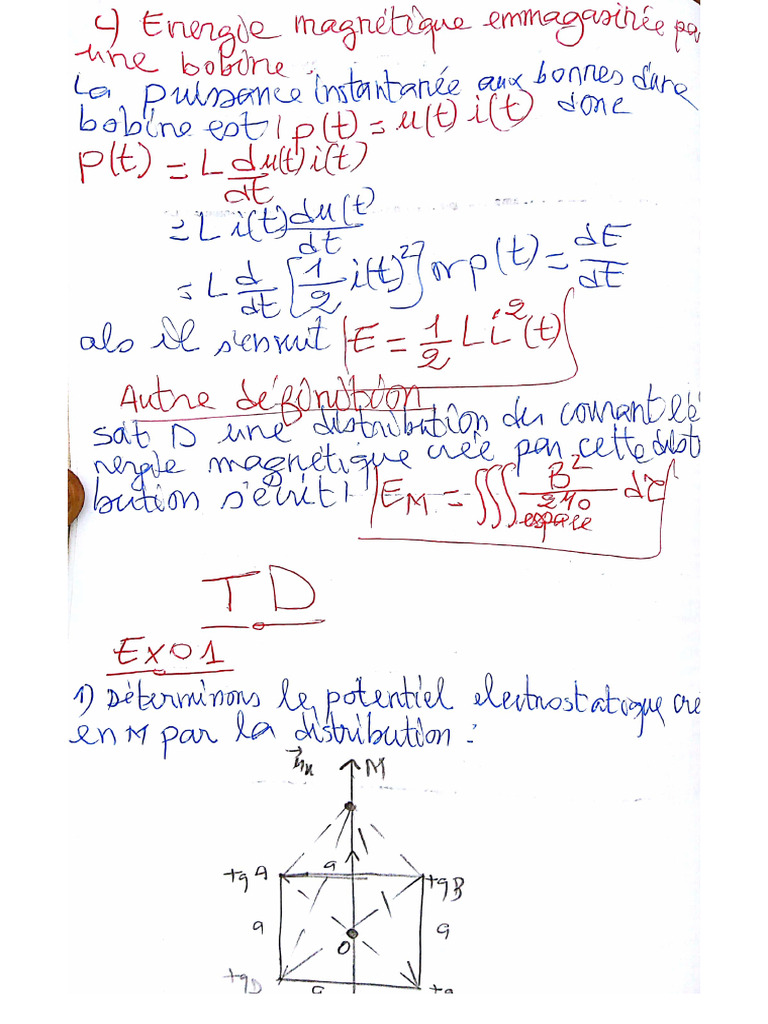 c) Energie magnétique emmagasinée pa
une bobine :
La puissance instantanée aux bornes d'une
bobine est | p(t) = u(t) i(t) donc
p(t) = L du(t)/dt i(t)
= L i(t) du(t)/dt
= L d/dt [1/2 i(t)²] or p(t) = dE/dt
als il s'ensuit | E = 1/2 L i²(t)
Autre définition
soit D une distribution du courant l'é
nergie magnétique crée par cette distr
bution s'écrit | E_M = ∭espace B²/2μ0 dτ
TD
Ex01
1) Déterminons le potentiel electrostatique cre
en M par la distribution :
M
+q A
a
+q B
a
O
a
+q D
a
+q